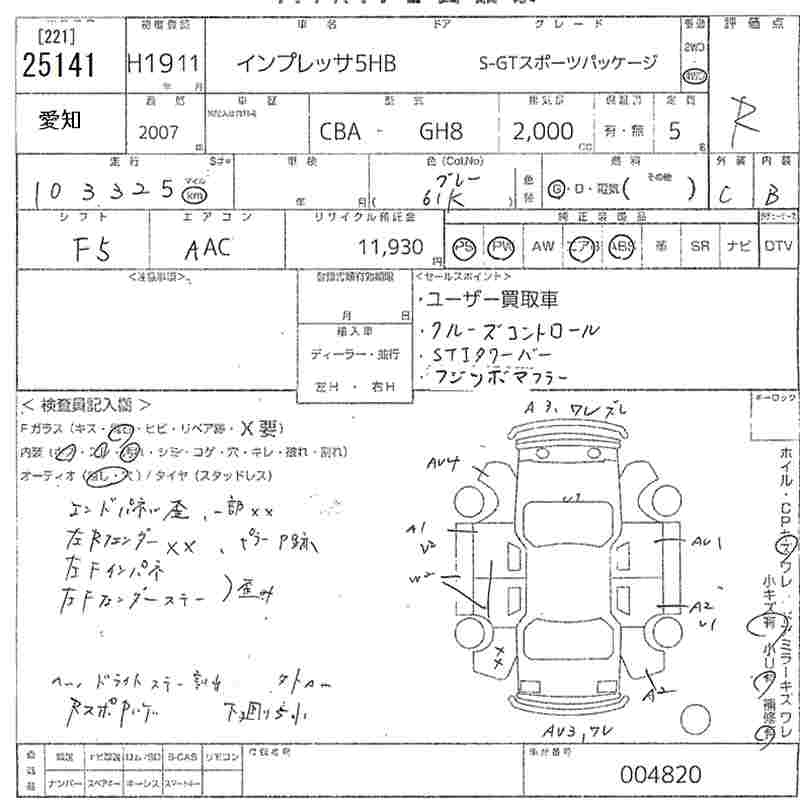 [221] 検査登記 車名 ドア グレード 駆動 評価点
25141 H19 11 インプレッサ5HB S-GTスポーツパッケージ 2WD 4WD
年 月
愛知 車歴 型式 排気量 保証書 定員 R
2007 CBA - GH8 2,000 有・無 5
CC 名
走行 車検 色(Col,No) 燃料 外装 内装
103325 マイル km 年 月 グレー 61K G・D・電気( その他 ) C B
シフト エアコン リサイクル預託金 純正装備品
F5 AAC 11,930円 PS PW AW エアB ABS 革 SR ナビ DTV
<注意事項> 登録書類有効期限 <セールスポイント>
月 日 ・ユーザー買取車
輸入車 ・クルーズコントロール
ディーラー・並行 ・STIタワーバー
左H・右H ・フジツボマフラー
<検査員記入欄> キーロック
Fガラス(キス・飛石・ヒビ・リペア跡・X要) A3,ワレズレ
内装( ・スレ・汚れ・シミ・コゲ・穴・キレ・破れ・割れ)
オーディオ(無し・穴)/タイヤ(スタッドレス) AU4
エンドパネル歪、一部XX U3
左Rフェンダー XX 、ピラーP跡 A1 U2 AU1
左Fインパネ W2
左Fフェンダーステー )歪 A2 U1
XX
ヘッドライトステー割れ A2
下回り
AU3,ワレ
ホイル・CPキズワレ ドアミラーキズワレ
小キズ有 小U有 補修有
記録 ナビ S-CAS リモコン 車台番号
ナンバー スペアキー キーレス スマートキー 004820